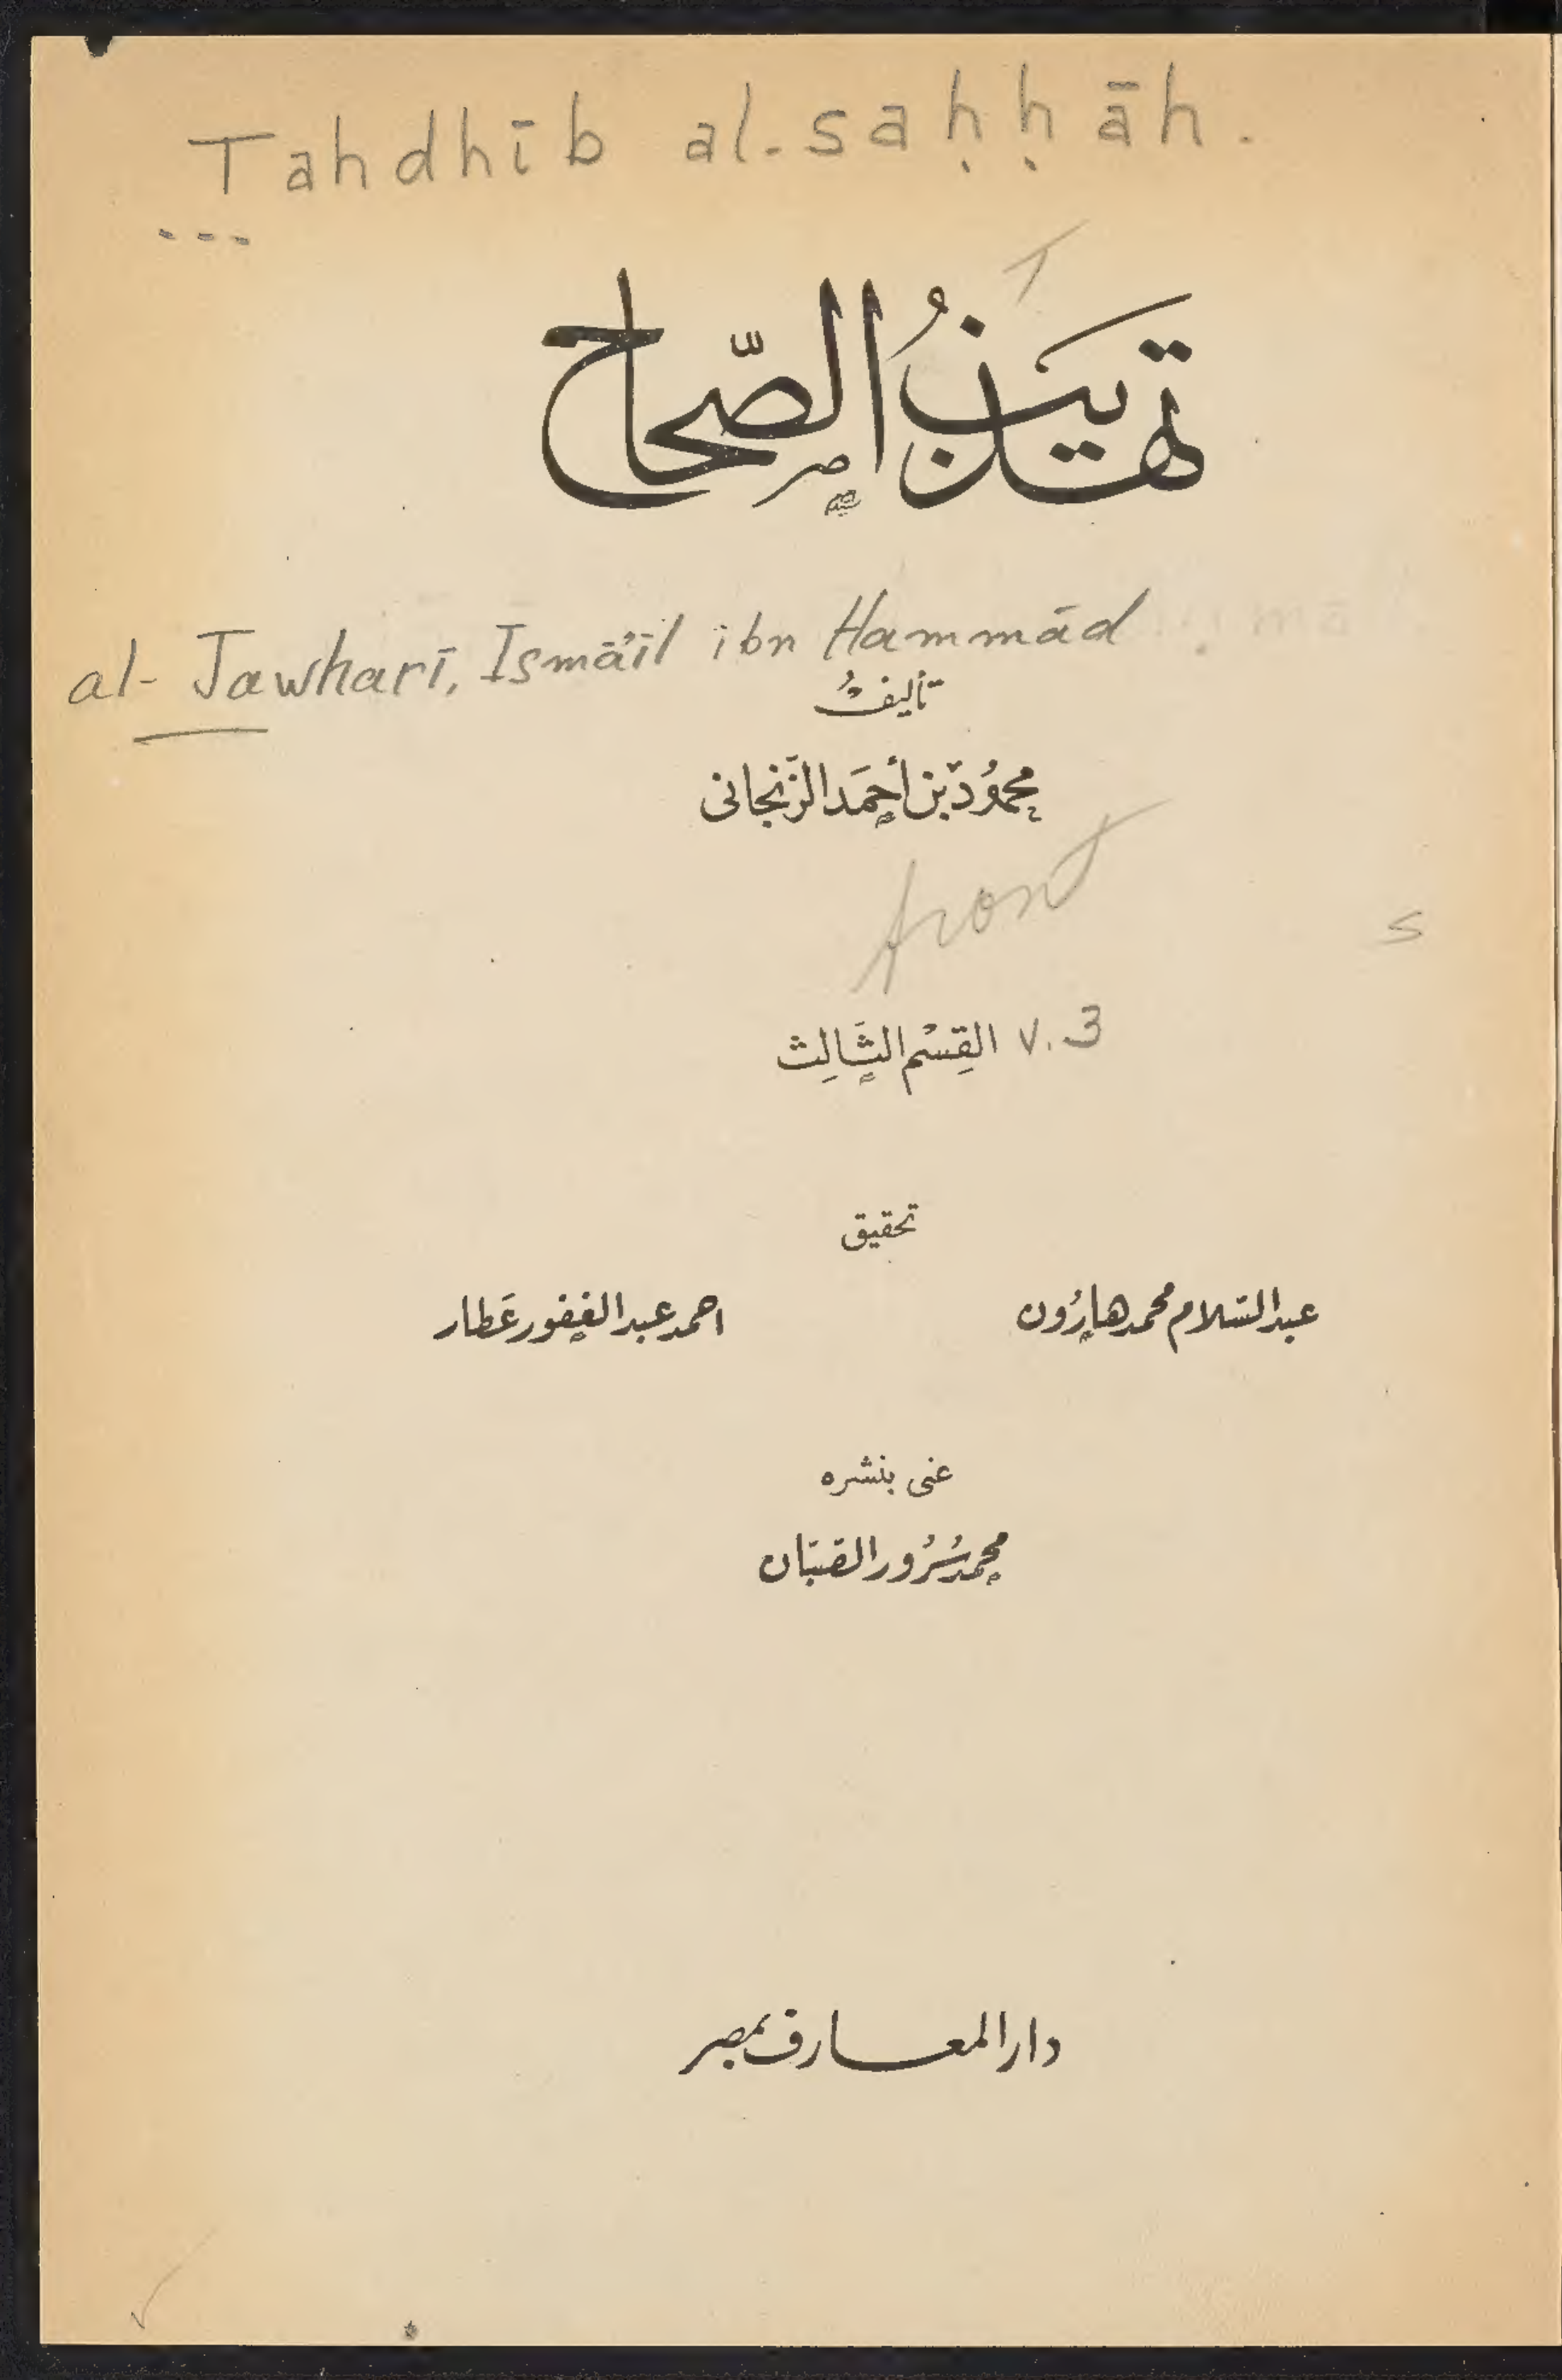 Tahdhīb al-saḥḥāh.
T
تهذيبُ الصّحاح
al-Jawharī, Ismā'īl ibn Hammād
تأليفُ
محمُود بن أحمَد الزّنجانى
front
s
القِسْم الثَّالِث v. 3
تحقيق
عبد السّلام محمد هارُون احمد عبد الغفور عَطار
عنى بنشره
محمد سُرُور الصّبّان
دار المعارف بمصر